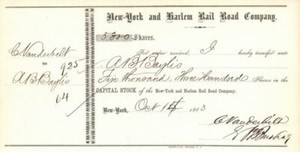 New-York and Harlem Rail Road Company.
5300 Shares.
For value received, I hereby transfer unto
C Vanderbilt
925
to
A B Baylis
64
A B Baylis
Five thousand three Hundred Shares in the
CAPITAL STOCK of the New-York and Harlem Rail Road Company.
New-York, Oct 14 1863
C Vanderbilt